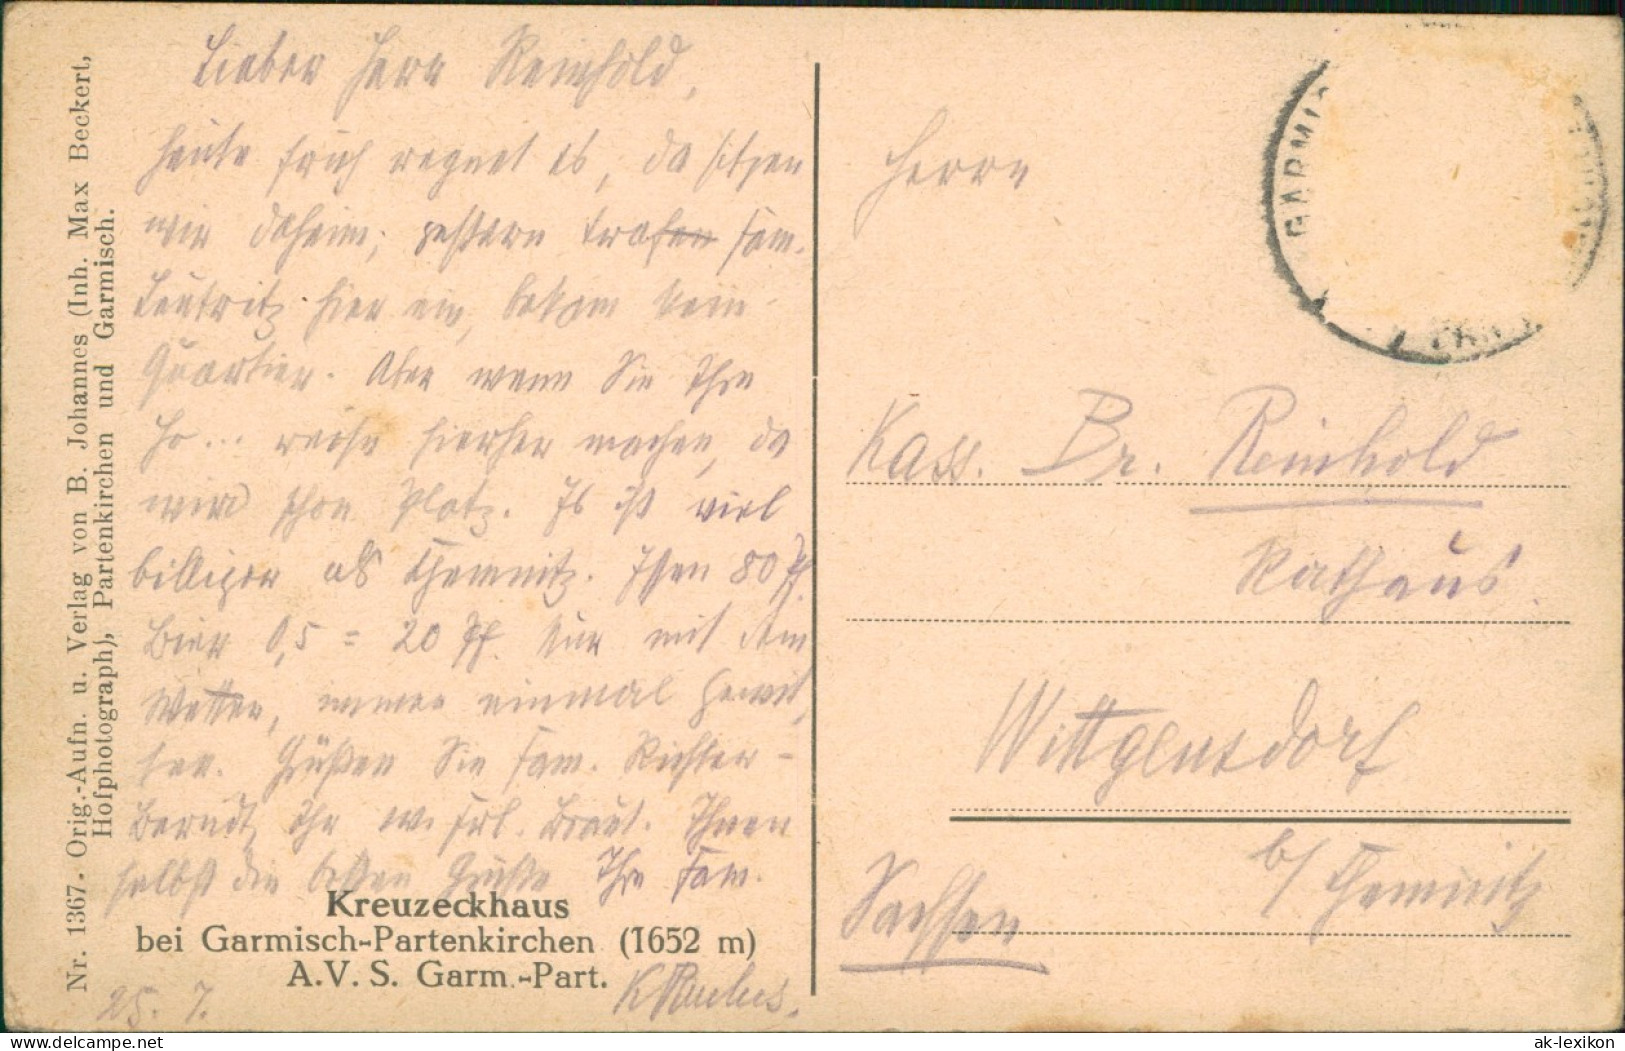 Nr. 1367. Orig.-Aufn. u. Verlag von B. Johannes (Inh. Max Beckert,
Hofphotograph), Partenkirchen und Garmisch.
Lieber Herr Reinhold,
heute früh regnet es, da sitzen
wir daheim; gestern trafen Fam.
Leutritz hier ein, bekam kein
Quartier. Aber wenn Sie Ihre
Ho... reise hierher machen, da
wird schon Platz. Es ist viel
billiger als Chemnitz. Essen 80 Pf.
Bier 0,5 = 20 Pf. Nur mit dem
Wetter, immer einmal Gewit,
ter. Grüßen Sie Fam. Richter-
Berndt, Ihr w. Frl. Braut. Ihnen
selbst die besten Grüße Ihre Fam.
Kreuzeckhaus
bei Garmisch-Partenkirchen (1652 m)
A.V.S. Garm.-Part.
25. 7.
GARMIS
Herrn
Kass. Br. Reinhold
Rathaus
Wittgensdorf
b/ Chemnitz
Sachsen
www.ansichtskarten-lexikon.de
ak-lexikon